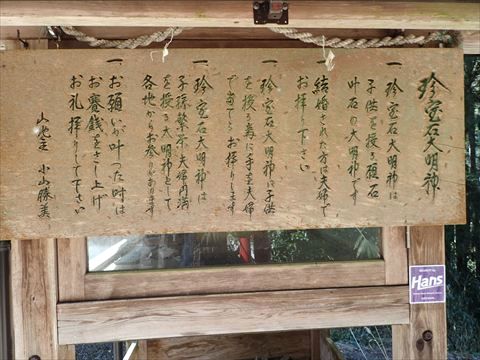 珍宝石大明神
一 珍宝石大明神は
子供を授る祖石
叶石の大明神です
一 結婚された方は夫婦で
お拝り下さい
一 珍宝石大明神に子供
を授る為に手を夫婦
で当てゝお拝りします
一 珍宝石大明神は
子孫繁栄夫婦円満
を授る大明神として
各地からお参りがあります
一 お願いが叶った時は
お賽銭をさし上げ
お礼拝りして下さい
山地主 小山勝美
Hans